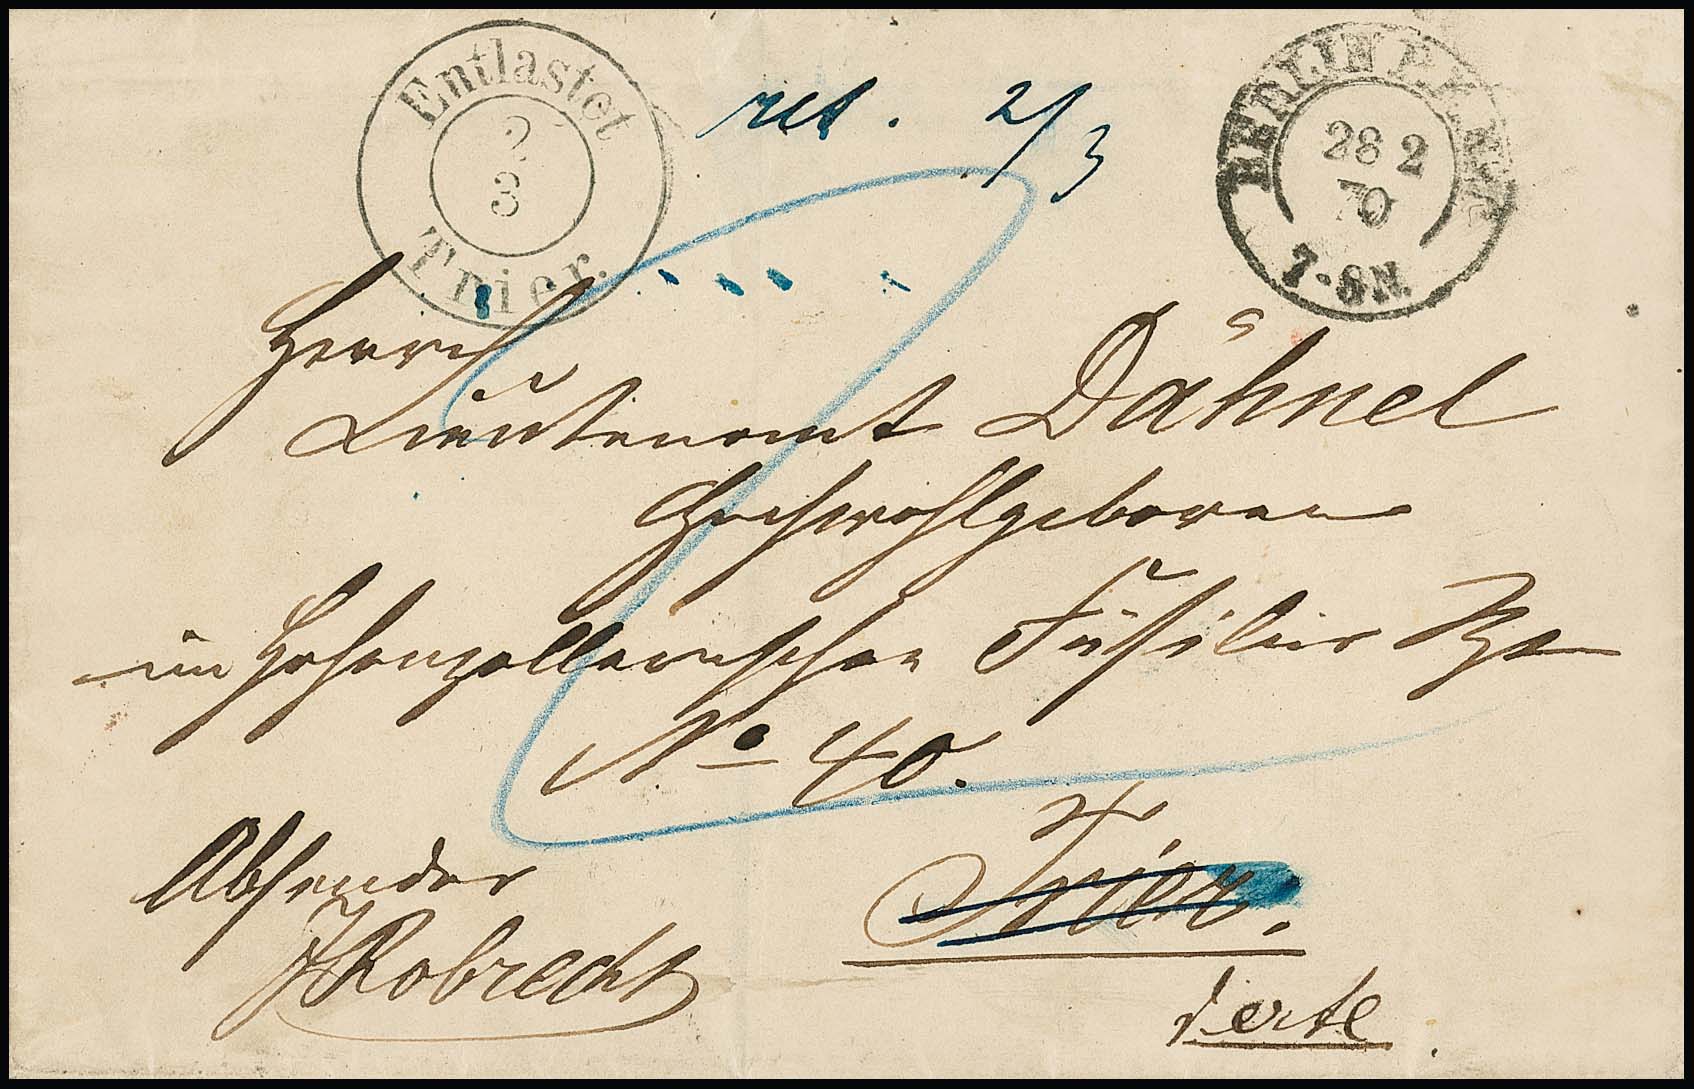 Entlastet
2
3
Trier.
ret. 2/3
BERLIN P.E.
28 2
70
7-8N.
Herrn
Lieutenant Dähnel
Hochwohlgeboren
im Hohenzollernschen Füsilier Rgt
No 40.
Trier.
Absender
J Robrecht